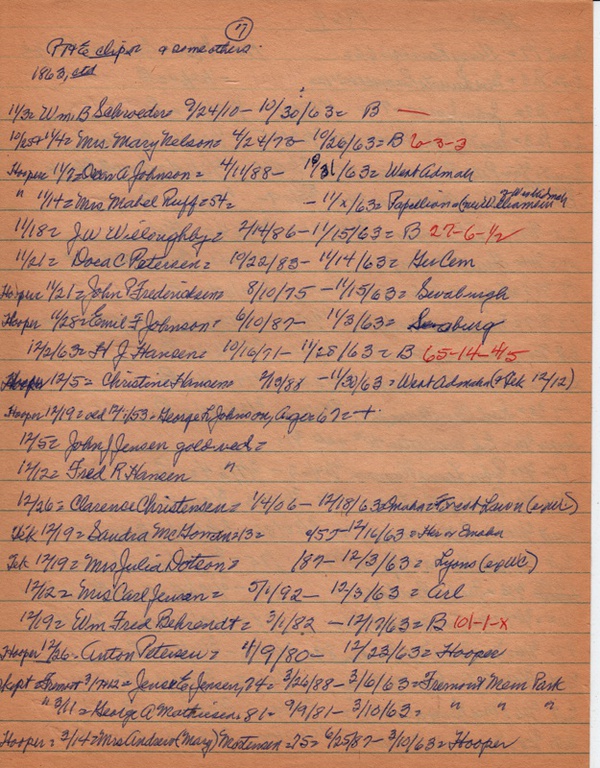 17
1863, etd
11/3= Wm. B Schroeder= 9/24/10 - 10/30/63= B —
10/25+11/4= Mrs. Mary Nelson= 4/24/73 - 10/26/63= B 6-3-3
Hooper 11/7= Dean A Johnson= 4/11/88 - 10/31/63= West Admah
" 11/14= Mrs Mabel Ruff=54= - 11/x/63= Papillion
11/18= J.W Willoughby= 2/14/86 - 11/15/63= B 27-6-1/2
11/21= Doca C Petersen= 10/22/83 - 11/14/63= Ger Cem
Hooper 11/21= John P Fredericksen= 8/10/75 - 11/15/63= Swaburgh
Hooper 11/28= Emil F Johnson= 6/10/87 - 11/3/63= Swaburg
12/2/63= H J Hansen= 10/16/71 - 11/25/63= B 65-14-4/5
Hooper 12/5= Christine Hansen= 2/13/88 - 11/30/63= West Admah (& Tek 12/12)
Hooper 12/19= George L Johnson, age 67= +
12/5= John J Jensen gold wed=
12/12= Fred R Hansen "
12/26= Clarence Christensen= 1/4/06 - 12/18/63= Omaha= Forest Lawn (ex WC)
Tek 12/19= Sandra McGowan=13= 4/5 - 12/16/63= Her or Omaha
Tek 12/19= Mrs Julia Dotson= /87 - 12/3/63= Lyons (ex WC)
12/12= Mrs Carl Jensen= 5/1/92 - 12/3/63= Arl
12/19= Wm Fred Behrendt= 3/1/82 - 12/17/63= B 101-1-x
Hooper 12/26= Anton Petersen= 11/9/80 - 12/23/63= Hooper
Fremont Jense E. Jensen, 74= 3/26/88 - 3/6/63= Fremont Mem Park
" 3/11= George A Mathiesen= 81= 9/9/81 - 3/10/63= " " "
Hooper= 3/14= Mrs Andrew (Mary) Mortensen= 75= 6/25/87 - 3/10/63= Hooper